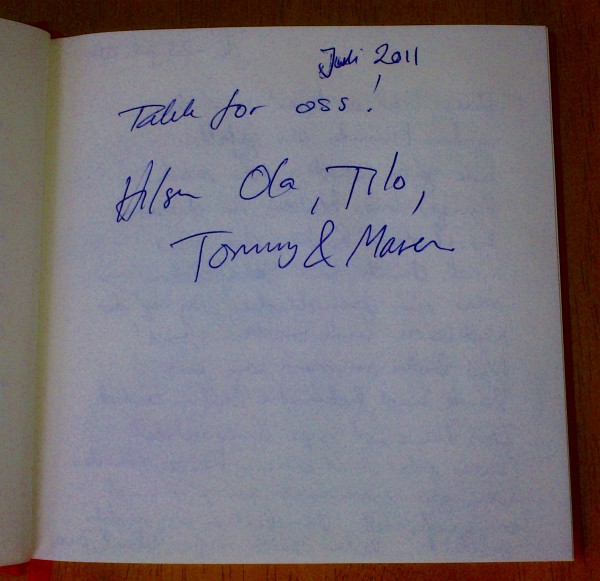 Juli 2011
Takk for oss!
Hilsen Ola, Tilo,
Tommy & Maren